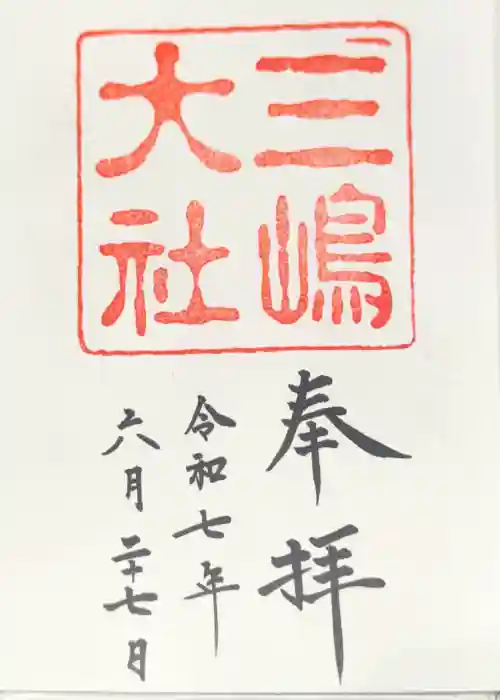 三嶋
大社
奉拝
令和七年
六月二十七日